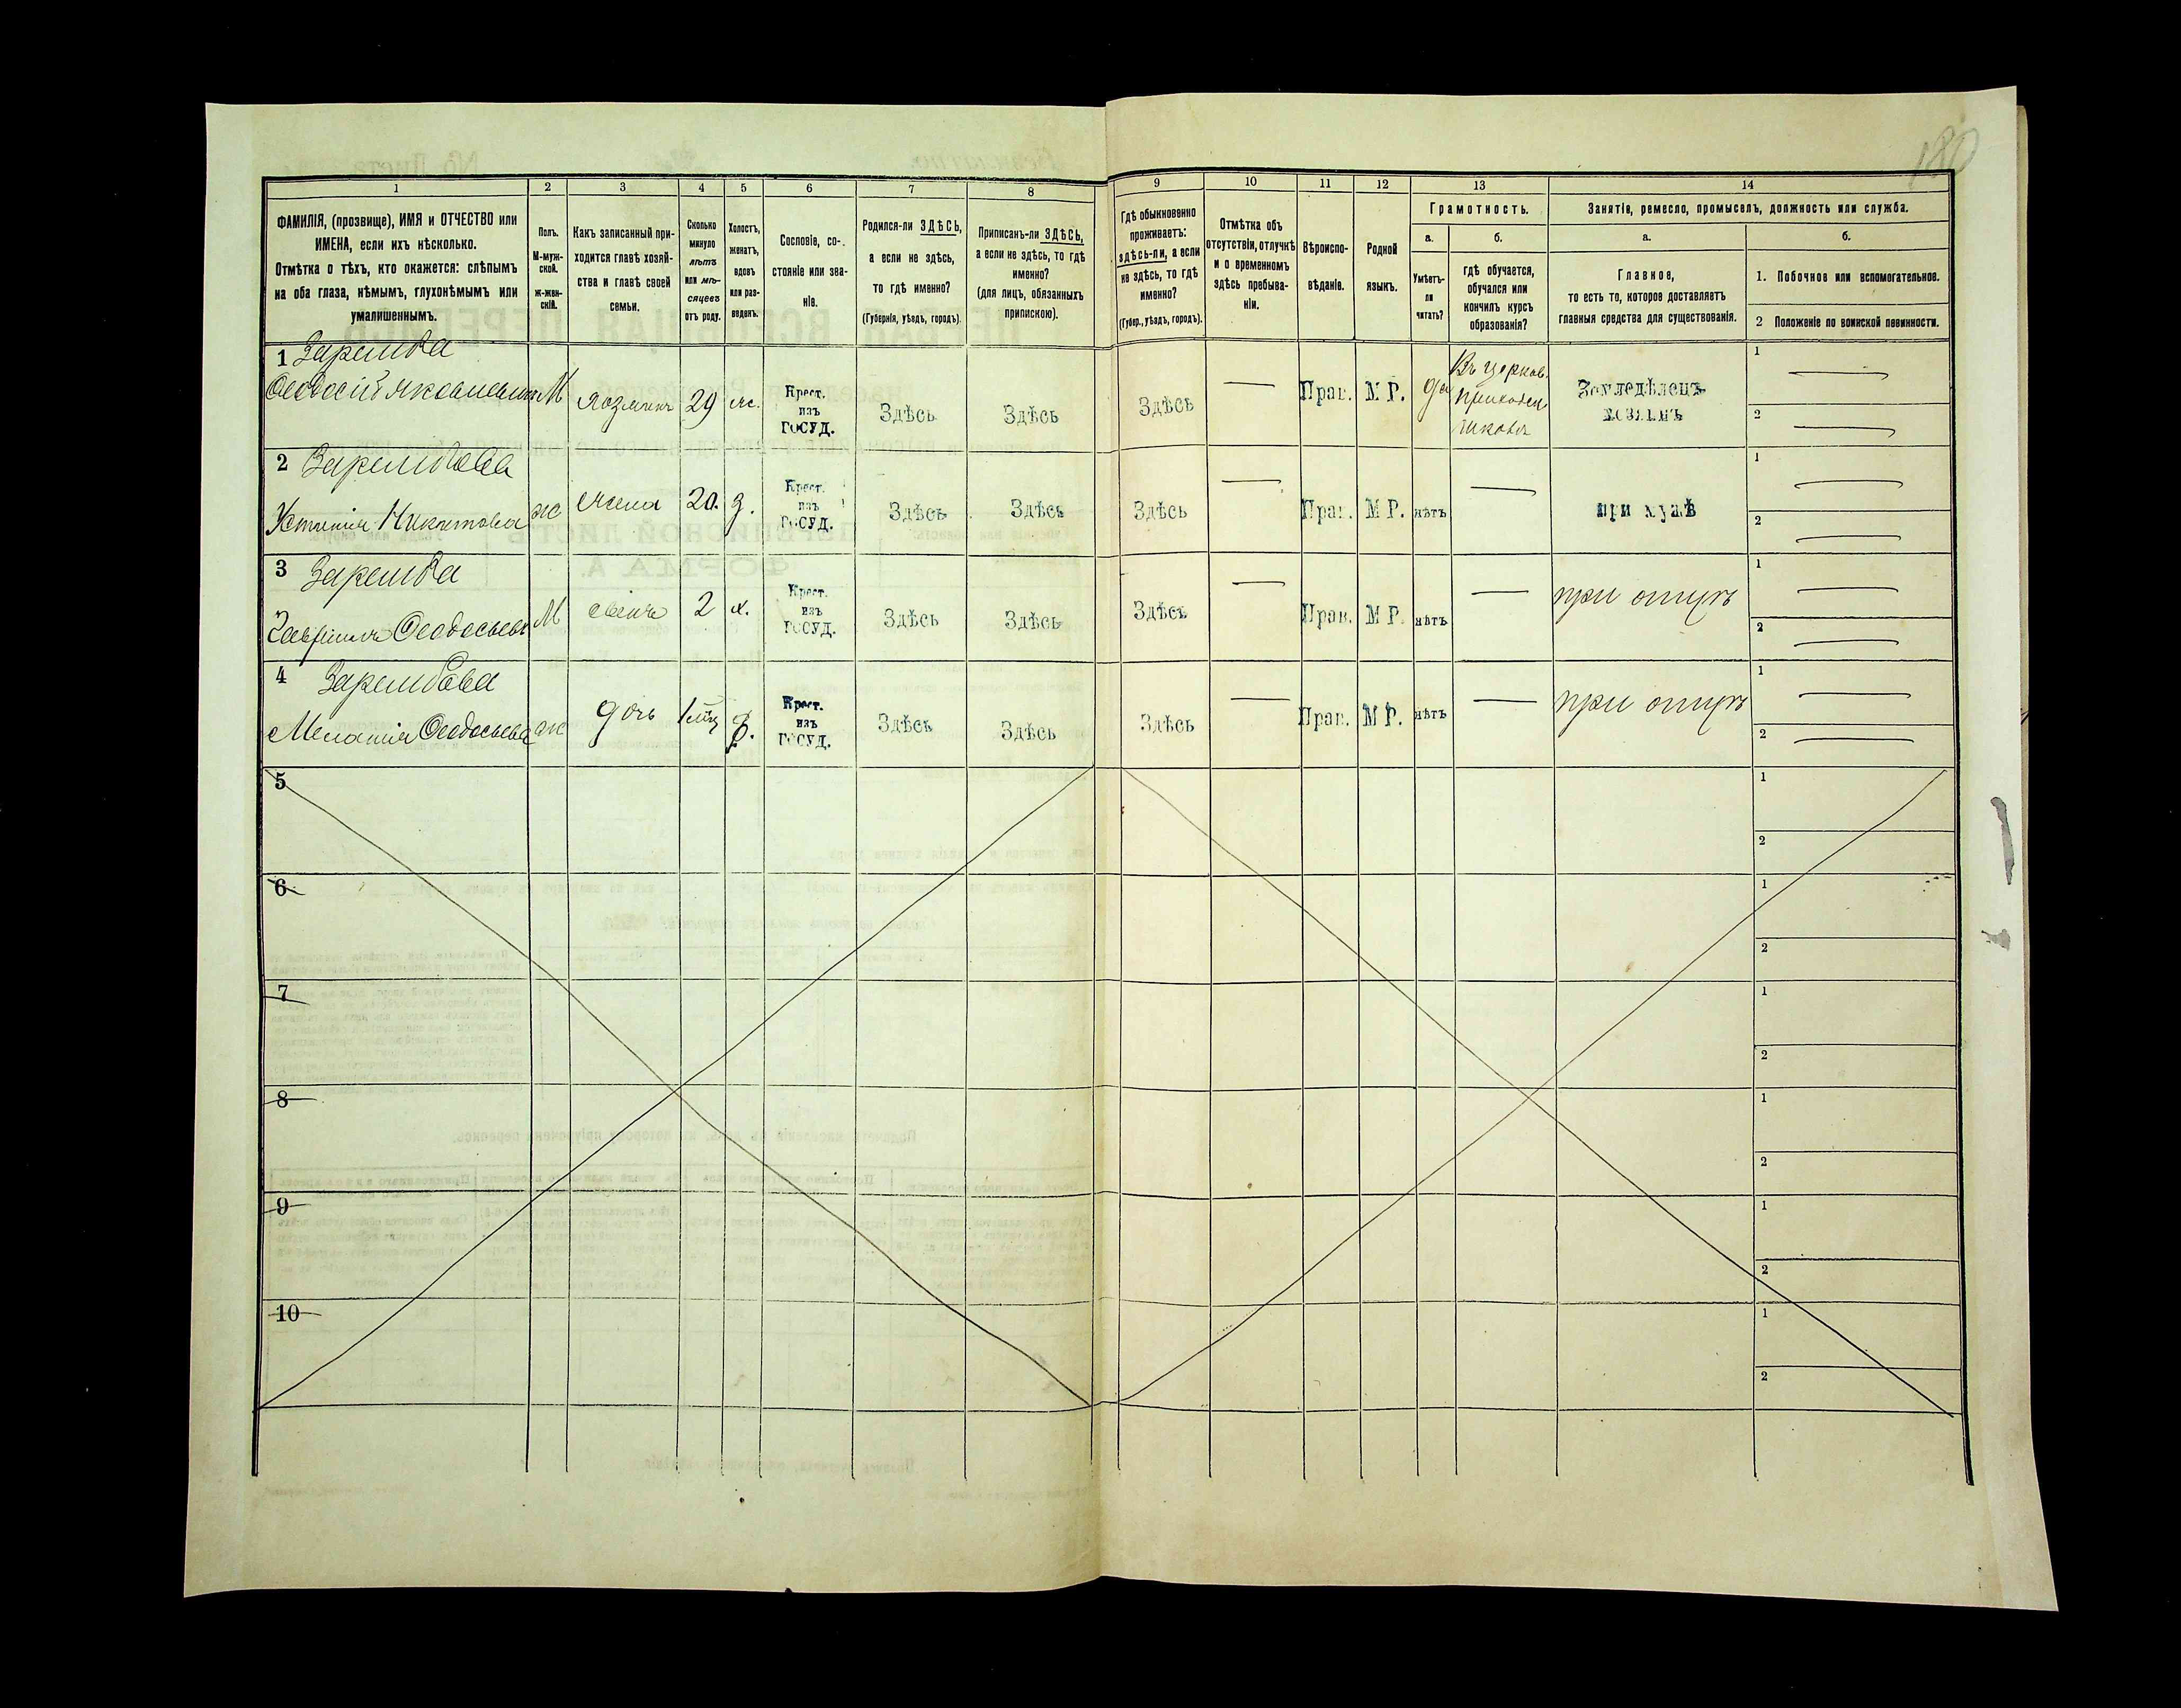 180
1 2 3 4 5 6 7 8 9 10 11 12 13 14
ФАМИЛІЯ, (прозвище), ИМЯ и ОТЧЕСТВО или
ИМЕНА, если ихъ нѣсколько.
Отмѣтка о тѣхъ, кто окажется: слѣпымъ
на оба глаза, нѣмымъ, глухонѣмымъ или
умалишеннымъ.
Полъ.
М-муж-
ской.
Ж-жен-
скій.
Какъ записанный при-
ходится главѣ хозяй-
ства и главѣ своей
семьи.
Сколько
минуло
лѣтъ
или мѣ-
сяцевъ
отъ роду.
Холостъ,
женатъ,
вдовъ
или раз-
веденъ.
Сословіе, со-
стояніе или зва-
ніе.
Родился-ли ЗДѢСЬ,
а если не здѣсь,
то гдѣ именно?
(Губернія, уѣздъ, городъ).
Приписанъ-ли ЗДѢСЬ,
а если не здѣсь, то гдѣ
именно?
(для лицъ, обязанныхъ
припискою).
Гдѣ обыкновенно
проживаетъ:
здѣсь-ли, а если
не здѣсь, то гдѣ
именно?
(Губер., уѣздъ, городъ).
Отмѣтка объ
отсутствіи, отлучкѣ
и о временномъ
здѣсь пребыва-
ніи.
Вѣроиспо-
вѣданіе.
Родной
языкъ.
Грамотность.
а.
Умѣетъ-
ли
читать?
б.
гдѣ обучается,
обучался или
кончилъ курсъ
образованія?
Занятіе, ремесло, промыселъ, должность или служба.
а.
Главное,
то есть то, которое доставляетъ
главныя средства для существованія.
б.
1. Побочное или вспомогательное.
2 Положеніе по воинской повинности.
1
Феодосій Яковлевичъ М хозяинъ 29 ж. Крест. изъ ГОСУД. Здѣсь Здѣсь Здѣсь — Прав. М Р. да Въ церков. приходск. школѣ Земледѣлецъ хозяинъ 1 — 2 —
2
Устинія Никитова ж жена 20. з. Крест. изъ ГОСУД. Здѣсь Здѣсь Здѣсь — Прав. М Р. нѣтъ — при мужѣ 1 — 2 —
3
Гавріилъ Феодосьевъ М сынъ 2 х. Крест. изъ ГОСУД. Здѣсь Здѣсь Здѣсь — Прав. М Р. нѣтъ — при отцѣ 1 — 2 —
4
Меланія Феодосьева ж дочь 1 мц Крест. изъ ГОСУД. Здѣсь Здѣсь Здѣсь — Прав. М Р. нѣтъ — при отцѣ 1 — 2 —
5 1 2
6 1 2
7 1 2
8 1 2
9 1 2
10 1 2